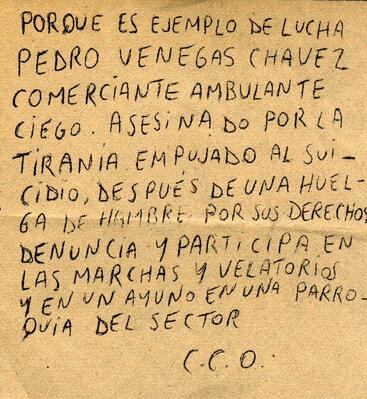 PORQUE ES EJEMPLO DE LUCHA
PEDRO VENEGAS CHAVEZ
COMERCIANTE AMBULANTE
CIEGO. ASESINADO POR LA
TIRANIA EMPUJADO AL SUI-
CIDIO, DESPUÉS DE UNA HUEL-
GA DE HAMBRE POR SUS DERECHOS
DENUNCIA Y PARTICIPA EN
LAS MARCHAS Y VELATORIOS
Y EN UN AYUNO EN UNA PARRO-
QUIA DEL SECTOR
C.C.O.